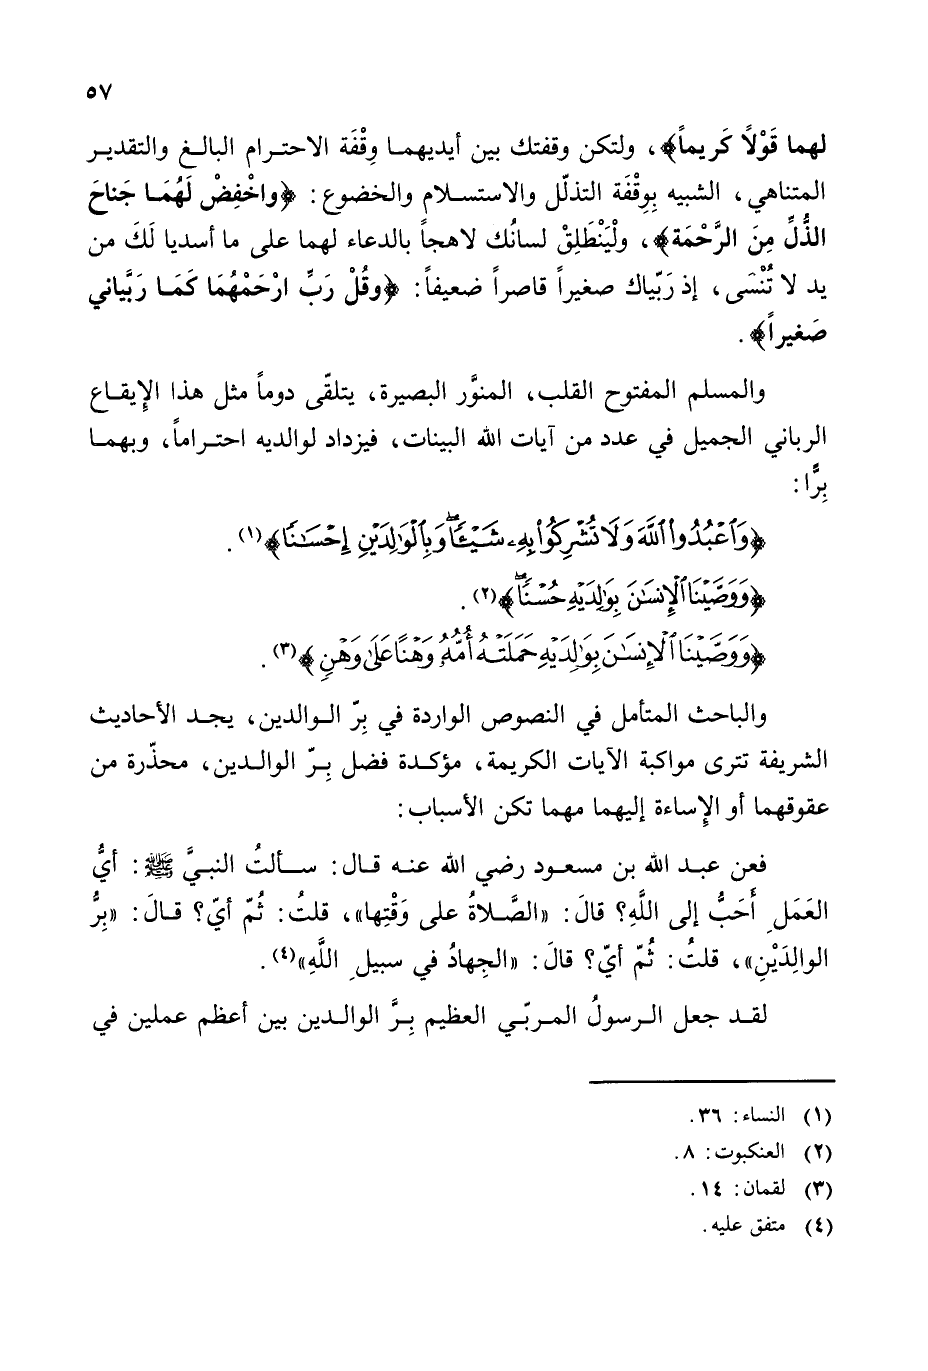 ٥٧
لهما قَوْلًا كَريماً﴾، ولتكن وقفتك بين أيديهما وِقْفَة الاحترام البالغ والتقدير
المتناهي، الشبيه بِوِقْفَة التذلّل والاستسلام والخضوع: ﴿واخْفِضْ لَهُمَا جَناحَ
الذُّلِّ مِنَ الرَّحْمَة﴾، ولْيَنْطَلِقْ لسانُك لاهجاً بالدعاء لهما على ما أسديا لَكَ من
يد لا تُنْسَى، إذ رَبّياك صغيراً قاصراً ضعيفاً: ﴿وقُلْ رَبِّ ارْحَمْهُمَا كَمَا رَبَّياني
صَغيراً﴾.
والمسلم المفتوح القلب، المنوَّر البصيرة، يتلقّى دوماً مثل هذا الإيقاع
الرباني الجميل في عدد من آيات الله البينات، فيزداد لوالديه احتراماً، وبهما
بِرًّا:
﴿وَٱعْبُدُوا۟ ٱللَّهَ وَلَا تُشْرِكُوا۟ بِهِۦ شَيْـًٔا ۖ وَبِٱلْوَٰلِدَيْنِ إِحْسَـٰنًا﴾(١).
﴿وَوَصَّيْنَا ٱلْإِنسَـٰنَ بِوَٰلِدَيْهِ حُسْنًا ۖ﴾(٢).
﴿وَوَصَّيْنَا ٱلْإِنسَـٰنَ بِوَٰلِدَيْهِ حَمَلَتْهُ أُمُّهُۥ وَهْنًا عَلَىٰ وَهْنٍ﴾(٣).
والباحث المتأمل في النصوص الواردة في بِرّ الوالدين، يجد الأحاديث
الشريفة تترى مواكبة الآيات الكريمة، مؤكدة فضل بِرّ الوالدين، محذّرة من
عقوقهما أو الإساءة إليهما مهما تكن الأسباب:
فعن عبد الله بن مسعود رضي الله عنه قال: سألتُ النبيَّ ﷺ: أيُّ
العَمَلِ أَحَبُّ إلى اللَّهِ؟ قالَ: «الصَّلاةُ على وَقْتِها»، قلتُ: ثُمّ أيّ؟ قالَ: «بِرُّ
الوالِدَيْنِ»، قلتُ: ثُمّ أيّ؟ قالَ: «الجِهادُ في سبيلِ اللَّهِ»(٤).
لقد جعل الرسولُ المربّي العظيم بِرَّ الوالدين بين أعظم عملين في
(١) النساء: ٣٦.
(٢) العنكبوت: ٨.
(٣) لقمان: ١٤.
(٤) متفق عليه.